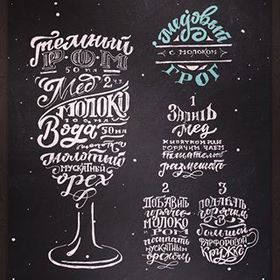 тёмный
РОМ
50 мл
Мёд 2 ч.
МОЛОКО
100 мл
Вода 50 мл
молотый
мускатный
орех
медовый
с молоком
грог
1
ЗАЛИТЬ
мёд
горячим
тщательно
размешать
2
ДОБАВИТЬ
горячее
МОЛОКО
РОМ
посыпать
мускатным
орехом
3
ПОДАВАТЬ
горячим
в
большой
фарфоровой